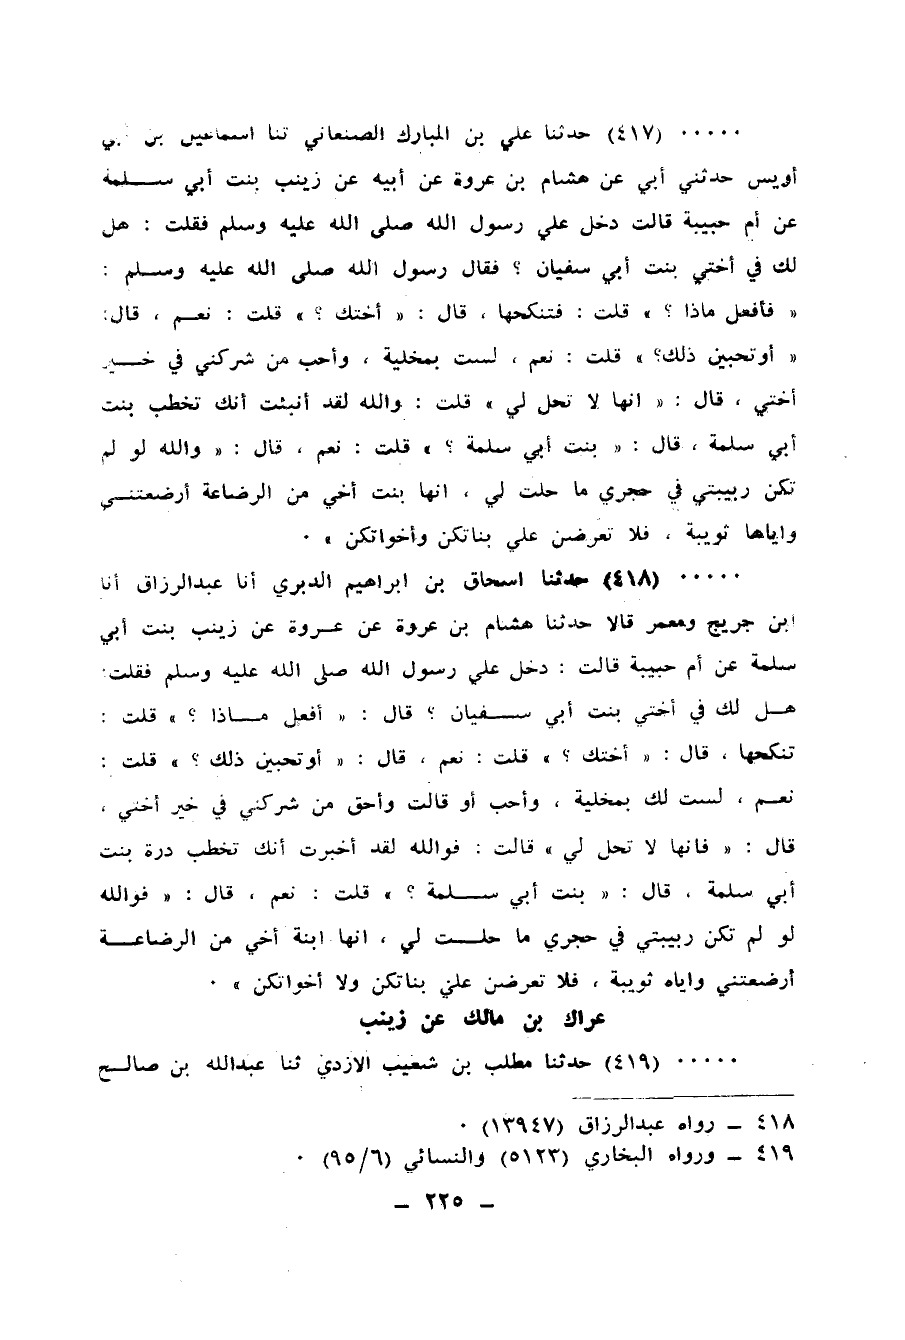 ٠٠٠٠٠ (٤١٧) حدثنا علي بن المبارك الصنعاني ثنا اسماعيل بن أبي
أويس حدثني أبي عن هشام بن عروة عن أبيه عن زينب بنت أبي سلمة
عن أم حبيبة قالت دخل علي رسول الله صلى الله عليه وسلم فقلت : هل
لك في أختي بنت أبي سفيان ؟ فقال رسول الله صلى الله عليه وسلم :
« فأفعل ماذا ؟ » قلت : فتنكحها ، قال : « أختك ؟ » قلت : نعم ، قال:
« أوتحبين ذلك؟ » قلت : نعم ، لست بمخلية ، وأحب من شركني في خير
أختي ، قال : « انها لا تحل لي » قلت : والله لقد أنبئت أنك تخطب بنت
أبي سلمة ، قال : « بنت أبي سلمة ؟ » قلت : نعم ، قال : « والله لو لم
تكن ربيبتي في حجري ما حلت لي ، انها بنت أخي من الرضاعة أرضعتني
واياها ثويبة ، فلا تعرضن علي بناتكن وأخواتكن » ٠
٠٠٠٠٠ (٤١٨) حدثنا اسحاق بن ابراهيم الدبري أنا عبدالرزاق أنا
ابن جريج ومعمر قالا حدثنا هشام بن عروة عن عروة عن زينب بنت أبي
سلمة عن أم حبيبة قالت : دخل علي رسول الله صلى الله عليه وسلم فقلت:
هل لك في أختي بنت أبي سفيان ؟ قال : « أفعل ماذا ؟ » قلت :
تنكحها ، قال : « أختك ؟ » قلت : نعم ، قال : « أوتحبين ذلك ؟ » قلت :
نعم ، لست لك بمخلية ، وأحب أو قالت وأحق من شركني في خير أختي ،
قال : « فانها لا تحل لي » قالت : فوالله لقد أخبرت أنك تخطب درة بنت
أبي سلمة ، قال : « بنت أبي سلمة ؟ » قلت : نعم ، قال : « فوالله
لو لم تكن ربيبتي في حجري ما حلت لي ، انها ابنة أخي من الرضاعة
أرضعتني واياه ثويبة ، فلا تعرضن علي بناتكن ولا أخواتكن » ٠
عراك بن مالك عن زينب
٠٠٠٠٠ (٤١٩) حدثنا مطلب بن شعيب الازدي ثنا عبدالله بن صالح
٤١٨ ــ رواه عبدالرزاق (١٣٩٤٧) ٠
٤١٩ ــ ورواه البخاري (٥١٢٣) والنسائي (٩٥/٦) ٠
ــ ٢٢٥ ــ